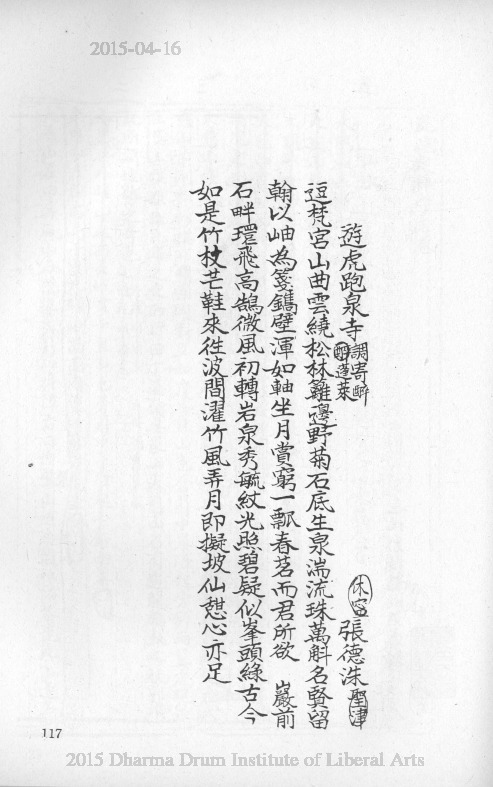 2015-04-16
遊虎跑泉寺 調寄醉蓬萊 休寧 張德洙 聖津
逗梵宮山曲雲繞松林籬邊野菊石底生泉湍流珠萬斛名賢留
翰以岫為箋鐫壁渾如軸坐月賞窮一瓢春茗而君所欲 巖前
石畔環飛高鵠微風初轉岩泉秀毓紋光照碧疑似峯頭綠古今
如是竹杖芒鞋來往波間濯竹風弄月即擬坡仙憇心亦足
117
2015 Dharma Drum Institute of Liberal Arts